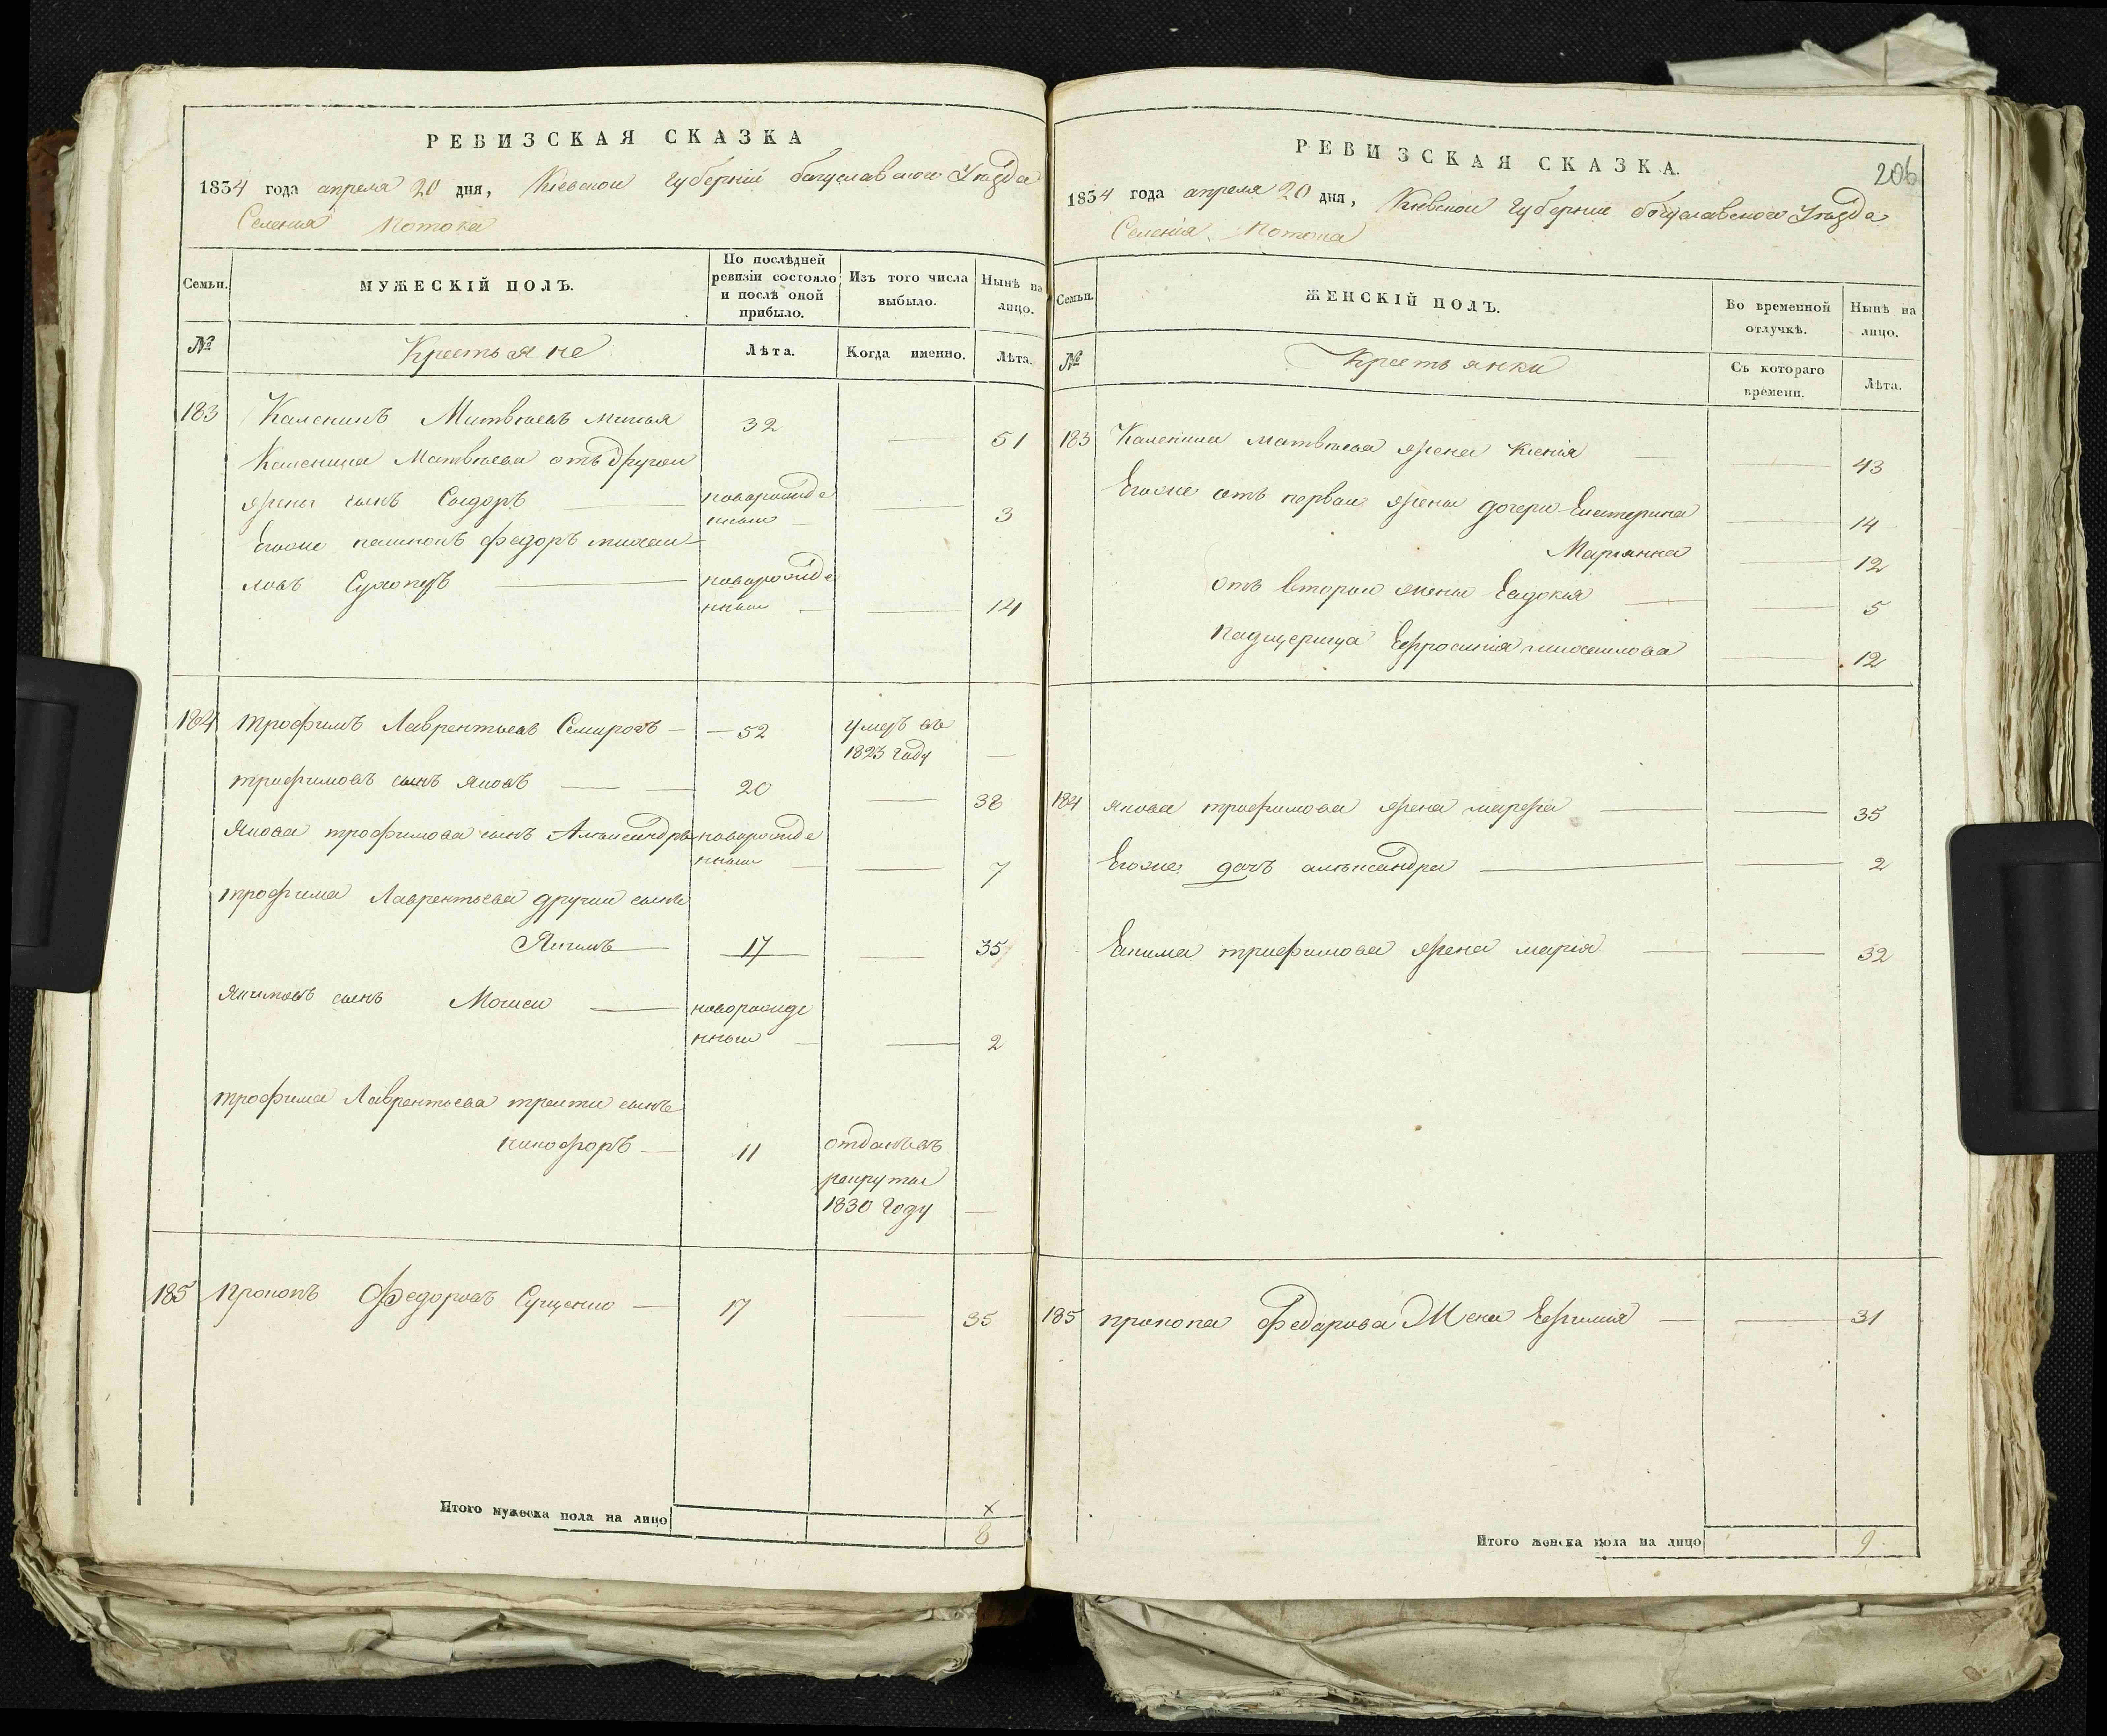 РЕВИЗСКАЯ СКАЗКА
1834 года апреля 20 дня, Киевской Губернии богуславского Уѣзда
Селения Потока
Семьи.
МУЖЕСКІЙ ПОЛЪ.
По послѣдней ревизіи состояло и послѣ оной прибыло.
Изъ того числа выбыло.
Нынѣ на лицо.
№
Крестьяне
Лѣта.
Когда именно.
Лѣта.
183 Каленикъ Матвѣевъ 32 51
Каленика Матвѣева отъ другой
жены сынъ Сидоръ новорожде
нный 3
Егоже пасинокъ Федоръ михаи
ловъ новорожде
нный 14
184 трофимъ Лаврентьевъ 52 умеръ въ
1823 году
трофимовъ сынъ Яковъ 20 38
Якова трофимова сынъ Алѣксандръ новорожде
нный 7
трофима Лаврентьева другий сынъ
Якимъ 17 35
Якимовъ сынъ Моисей новорожде
нный 2
трофима Лаврентьева трети сынъ
никифоръ 11 отданъ въ
рекруты
1830 году
185 Прокопъ Федоровъ Сущенко 17 35
Итого мужеска пола на лицо 8
РЕВИЗСКАЯ СКАЗКА.
206
1834 года апреля 20 дня, Киевской Губернии богуславского Уѣзда
Селенія Потока
Семьи.
ЖЕНСКІЙ ПОЛЪ.
Во временной отлучкѣ.
Нынѣ на лицо.
№
Крестьянки
Съ котораго времени.
Лѣта.
183 Каленика матвѣева жена Ксенія 43
Егоже отъ первой жены дочери Екатерина 14
Марianна 12
отъ второй жены Евдокия 5
Падщерица Ефросинія михаилова 12
184 Якова трофимова жена марфа 35
Егоже дочъ алѣксандра 2
Екима трофимова жена марія 32
185 прокопа Федарова Жена Ефимия 31
Итого женска пола на лицо 9